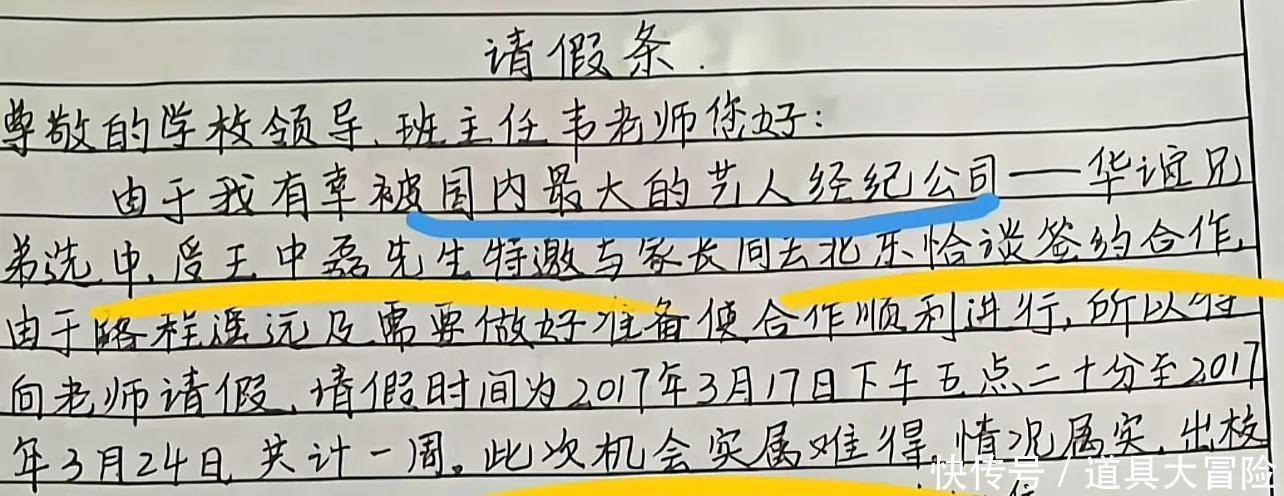 请假条.
尊敬的学校领导、班主任韦老师您好:
由于我有幸被国内最大的艺人经纪公司——华谊兄
弟选中,受王中磊先生特邀与家长同去北京恰谈签约合作,
由于路程遥远及需要做好准备使合作顺利进行,所以特
向老师请假,请假时间为2017年3月17日下午五点二十分至2017
年3月24日,共计一周。此次机会实属难得,情况属实,出校
快传号 / 道具大冒险